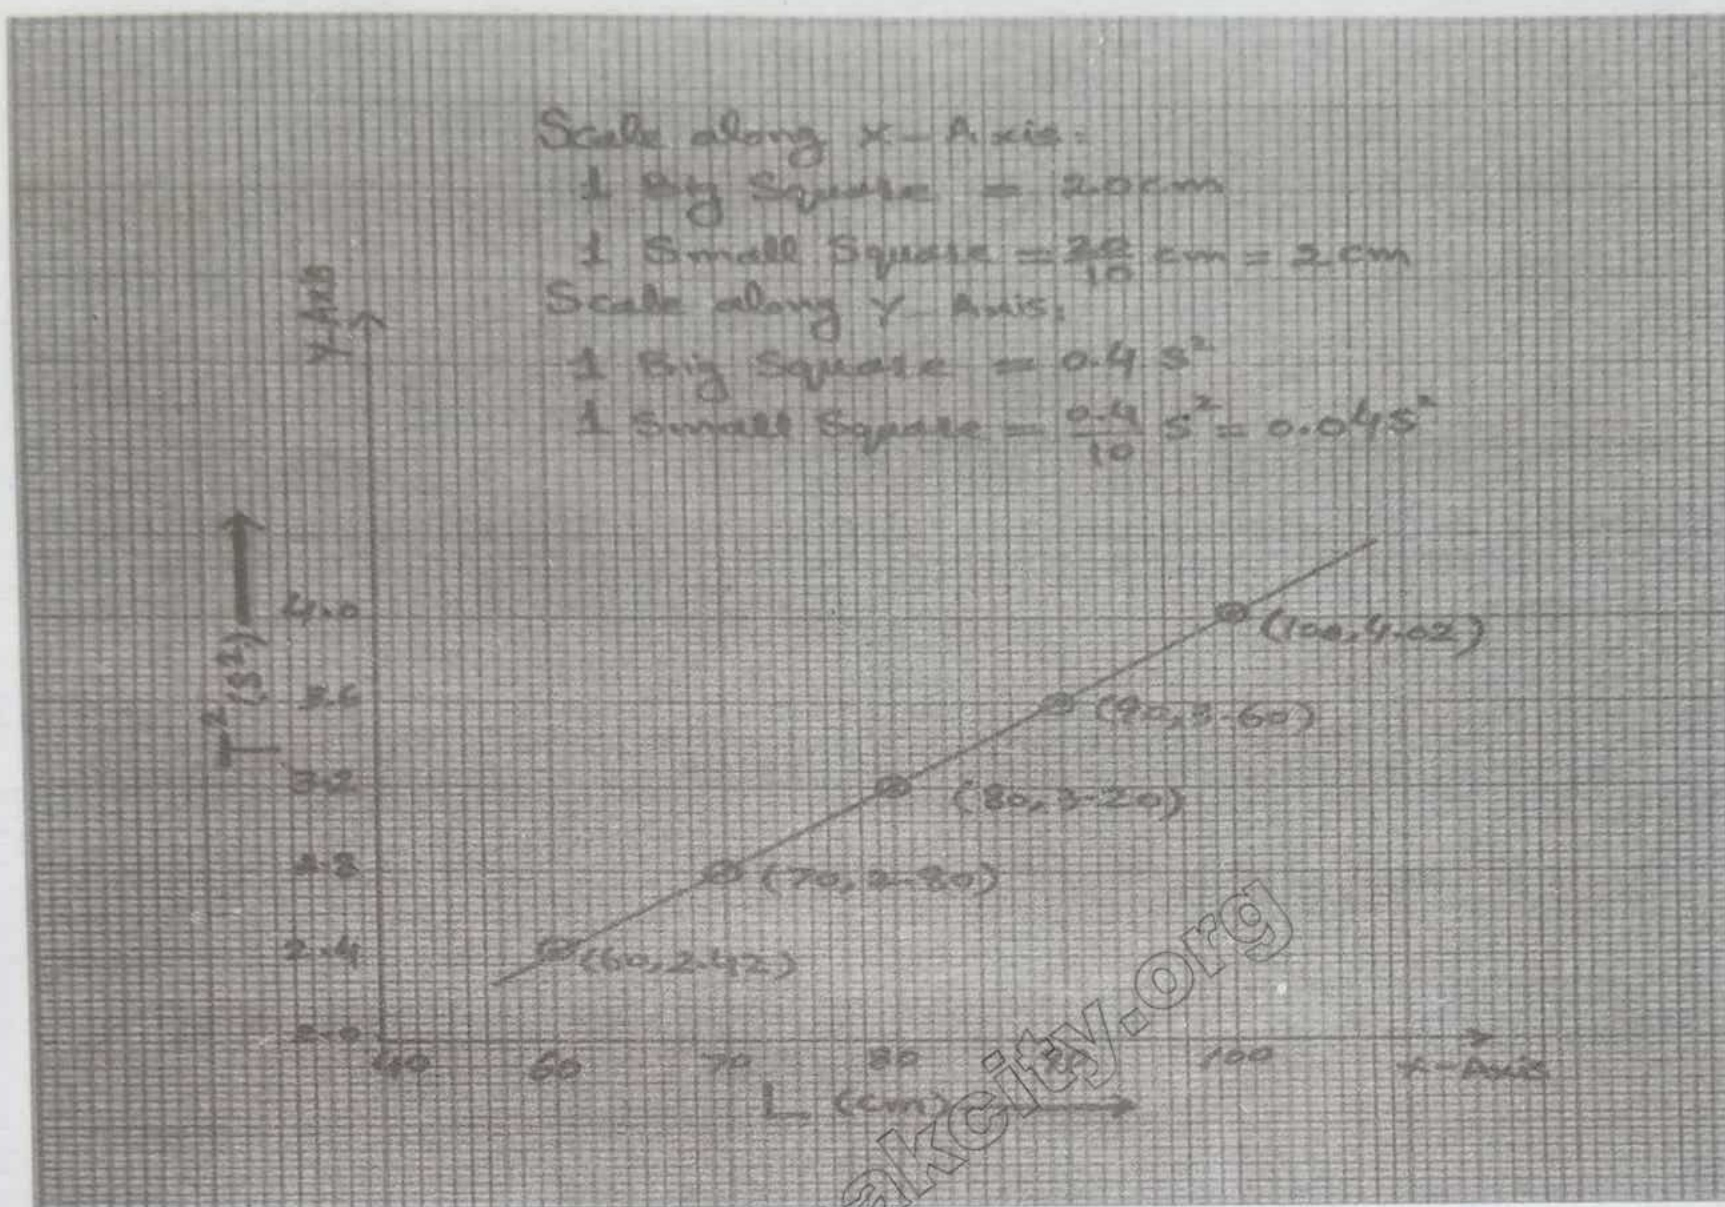 Scale along X-Axis:
1 Big Square = 20cm
1 Small Square = 20/10 cm = 2cm
Scale along Y-Axis:
1 Big Square = 0.4 s²
1 Small Square = 0.4/10 s² = 0.04s²
Y-Axis
T² (s²)
4.0
3.6
3.2
2.8
2.4
2.0
(100, 4.02)
(90, 3.60)
(80, 3.20)
(70, 2.80)
(60, 2.42)
40 60 70 80 90 100 X-Axis
L (cm)
akcity.org